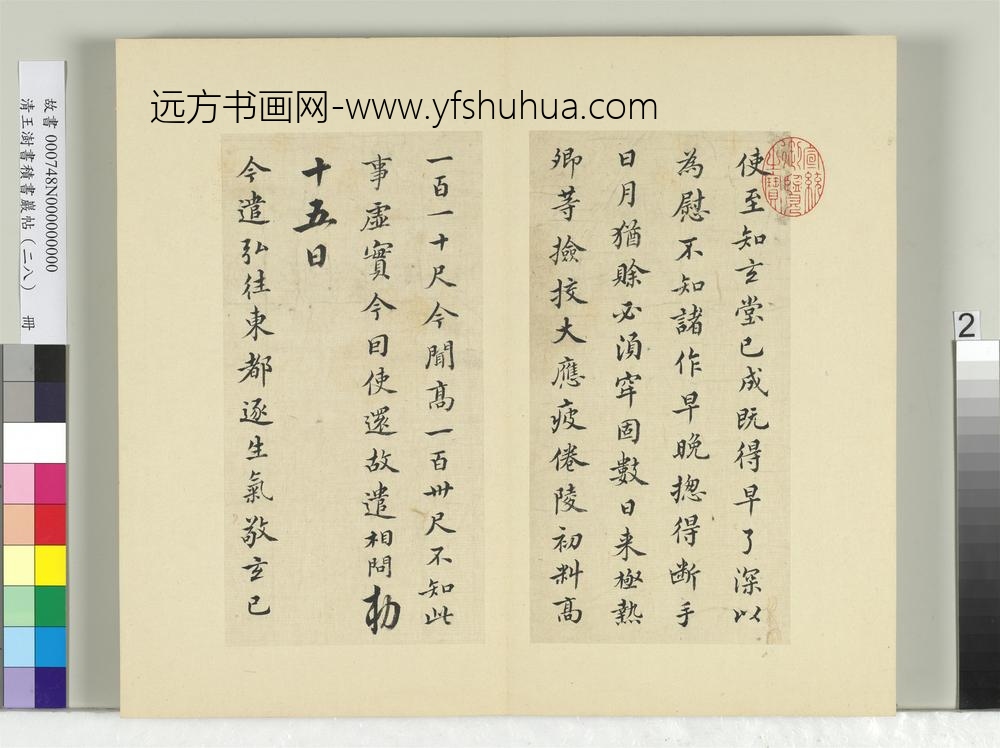 远方书画网-www.yfshuhua.com
使至知玄堂已成既得早了深以
為慰不知諸作早晚揔得断手
日月猶賒必湏牢固數日来極熱
卿等撿挍大應疲倦陵初料高
一百一十尺今聞高一百卅尺不知此
事虛實今因使還故遣相問勅
十五日
今遣弘往東都逐生氣敬玄已
宣統御覽之寶
故書 000748N000000000
清王澍書積書巖帖(二八) 冊
2